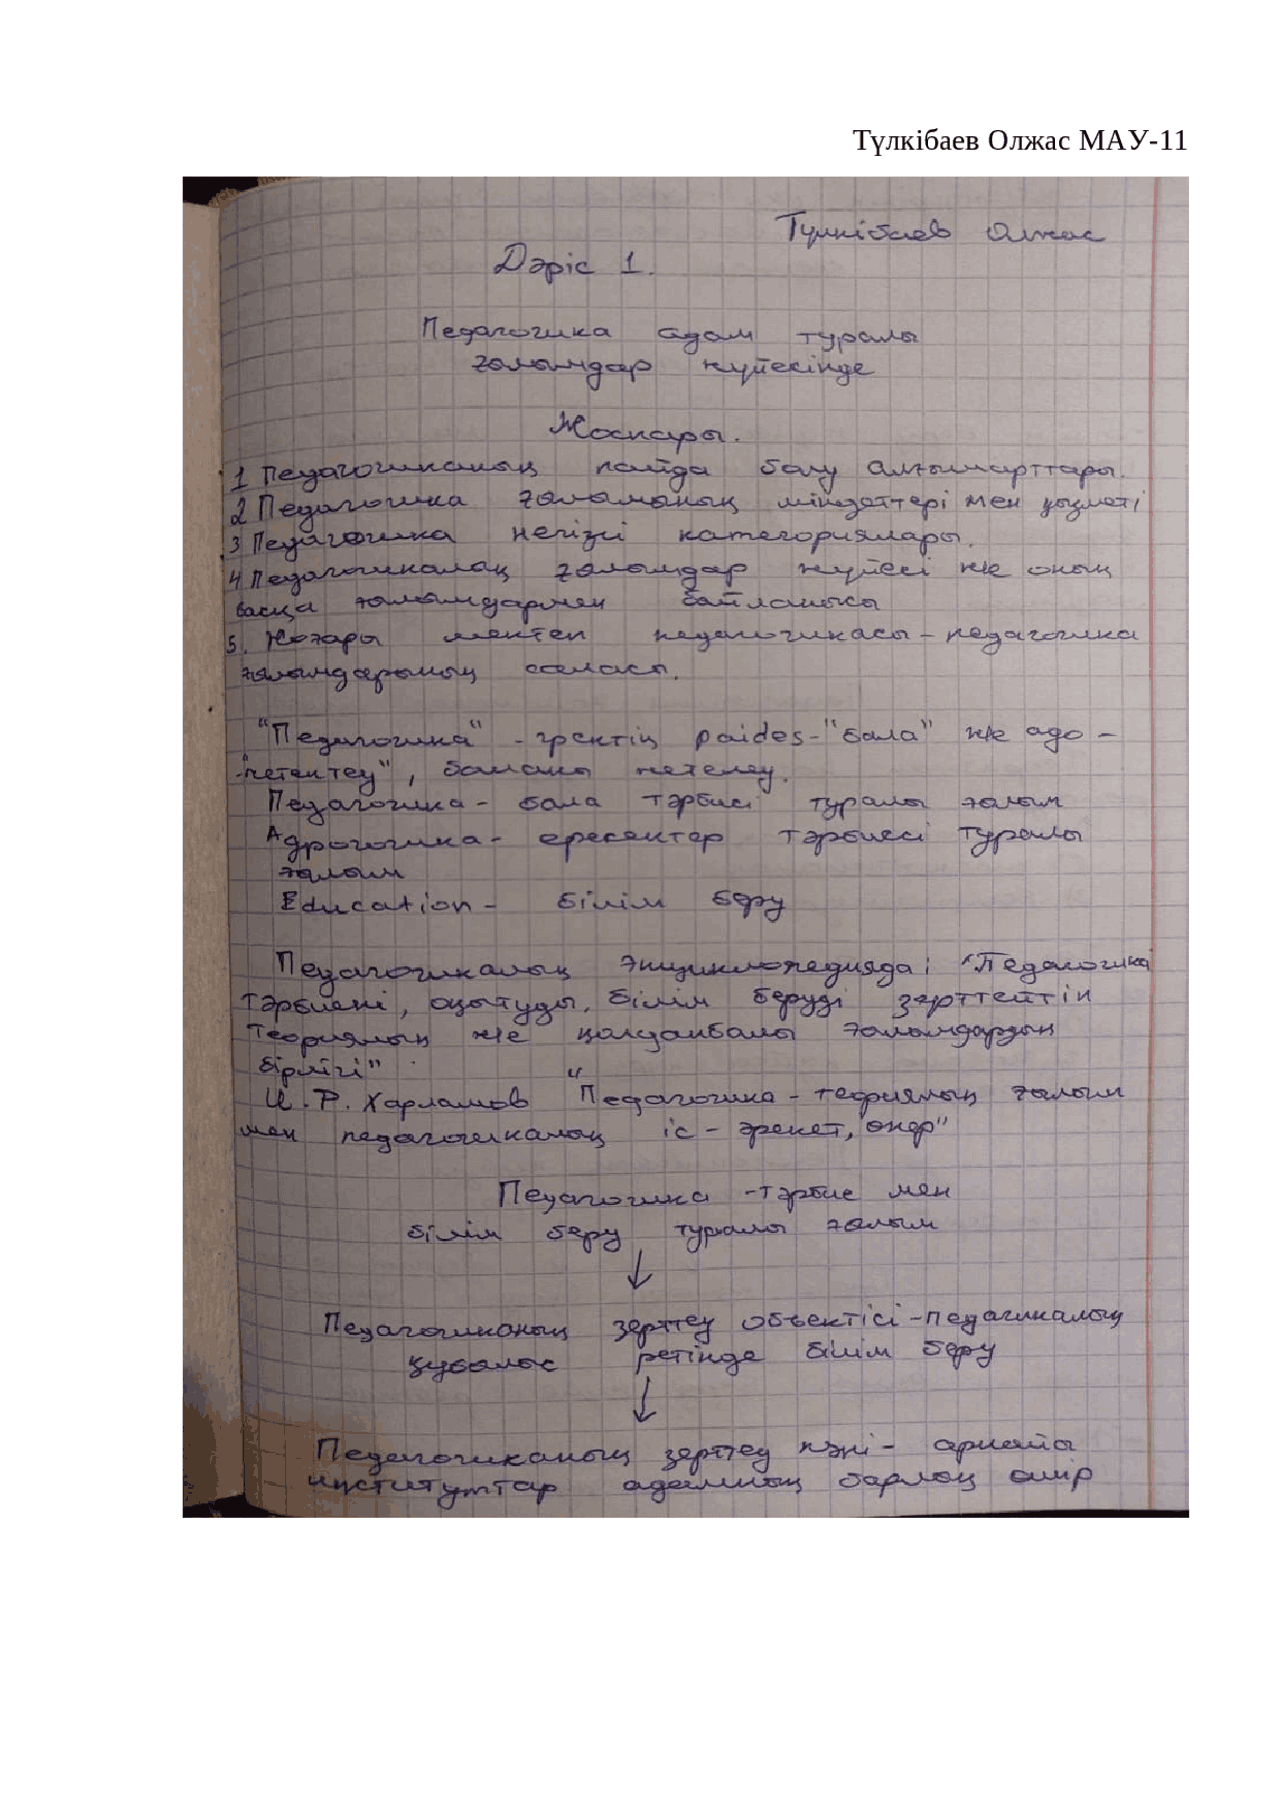 Түлкібаев Олжас МАУ-11
Түлкібаев Олжас
Дәріс 1.
Педагогика адам туралы
ғылымдар жүйесінде
Жоспары.
1 Педагогиканың пайда болу алғышарттары.
2 Педагогика ғылымының міндеттері мен қызметі
3 Педагогика негізгі категориялары.
4 Педагогикалық ғылымдар жүйесі және оның
басқа ғылымдармен байланысы
5. Жоғары мектеп педагогикасы - педагогика
ғылымдарының саласы.
"Педагогика" - гректің paides - "бала" ж/е адо -
"жетектеу", баланы жетелеу.
Педагогика - бала тәрбиесі туралы ғылым
Адрогогика - ересектер тәрбиесі туралы
ғылым
Education - білім беру
Педагогикалық энциклопедияда: "Педагогика
тәрбиені, оқытуды, білім беруді зерттейтін
теориялық ж/е қолданбалы ғылымдардың
бірлігі"
И.Р. Харламов "Педагогика - теориялық ғылым
мен педагогикалық іс - әрекет, өнер"
Педагогика - тәрбие мен
білім беру туралы ғылым
↓
Педагогиканың зерттеу объектісі - педагикалық
құбылыс ретінде білім беру
↓
Педагогиканың зерттеу пәні - арнайы
институттар адамның барлық өмір